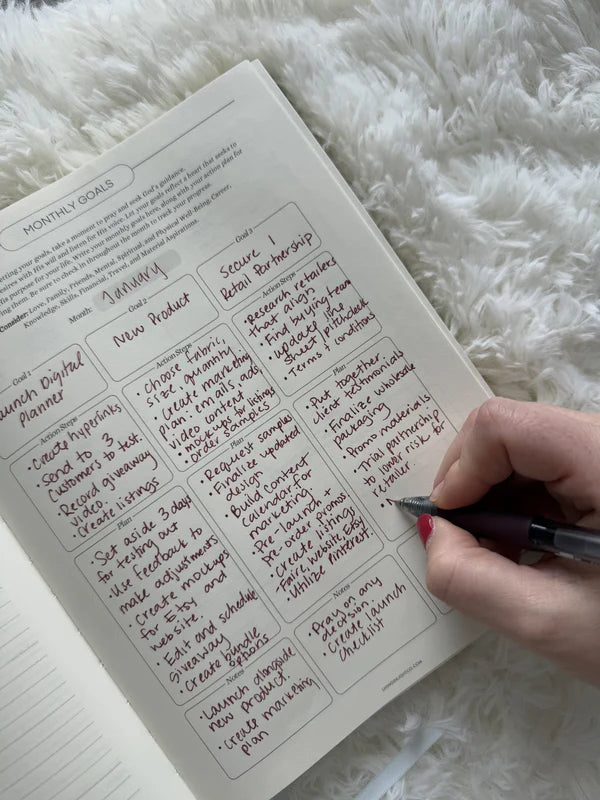 MONTHLY GOALS
setting your goals, take a moment to pray and seek God's guidance.
desires with His will and listen for His voice. Let your goals reflect a heart that seeks to
His purpose for your life. Write your monthly goals here, along with your action plan for
ing them. Be sure to check in throughout the month to track your progress.
Consider: Love, Family, Friends, Mental, Spiritual, and Physical Well-Being, Career,
Knowledge, Skills, Financial, Travel, and Material Aspirations.
Month: January
Goal 1
aunch Digital
Planner
Action Steps
• Create hyperlinks
• Send to 3
customers to test.
• Record giveaway
video.
• Create listings
Plan
• Set aside 3 days
for testing out
• Use feedback to
make adjustments
• Create mockups
for Etsy and
website.
• Edit and schedule
giveaway
• Create bundle
options
Notes
• Launch alongside
new product.
• Create marketing
plan
Goal 2
New Product
Action Steps
• Choose fabric,
size, quantity
• Create marketing
plan: emails, ads,
video content
• mockups for listings
• Order samples
Plan
• Request samples
• Finalize updated
design
• Build content
calendar for
marketing
• Pre-launch +
Pre-order promos
• Create listings
Faire, website, Etsy
• Utilize Pinterest.
Notes
• Pray on any
decision
• Create launch
checklist
Goal 3
Secure 1
Retail Partnership
Action Steps
• Research retailers
that align
• Find buying team
• Update line
sheet, pitch deck
• Terms + conditions
Plan
• Put together
client testimonials
• Finalize wholesale
packaging
• Promo materials
• Trial partnership
to lower risk for
retailer.
•